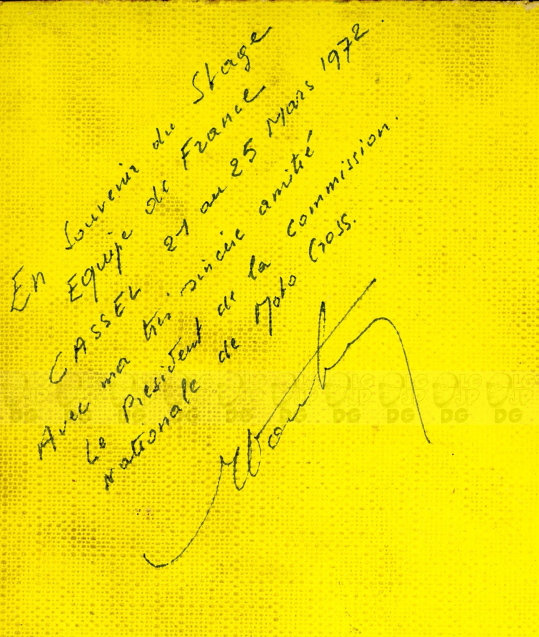 En Souvenir du Stage
Equipe de France
CASSEL 21 au 25 Mars 1972.
Avec ma très sincère amitié
Le Président de la Commission.
Nationale de Moto Cross.
DG DG DG DG DG